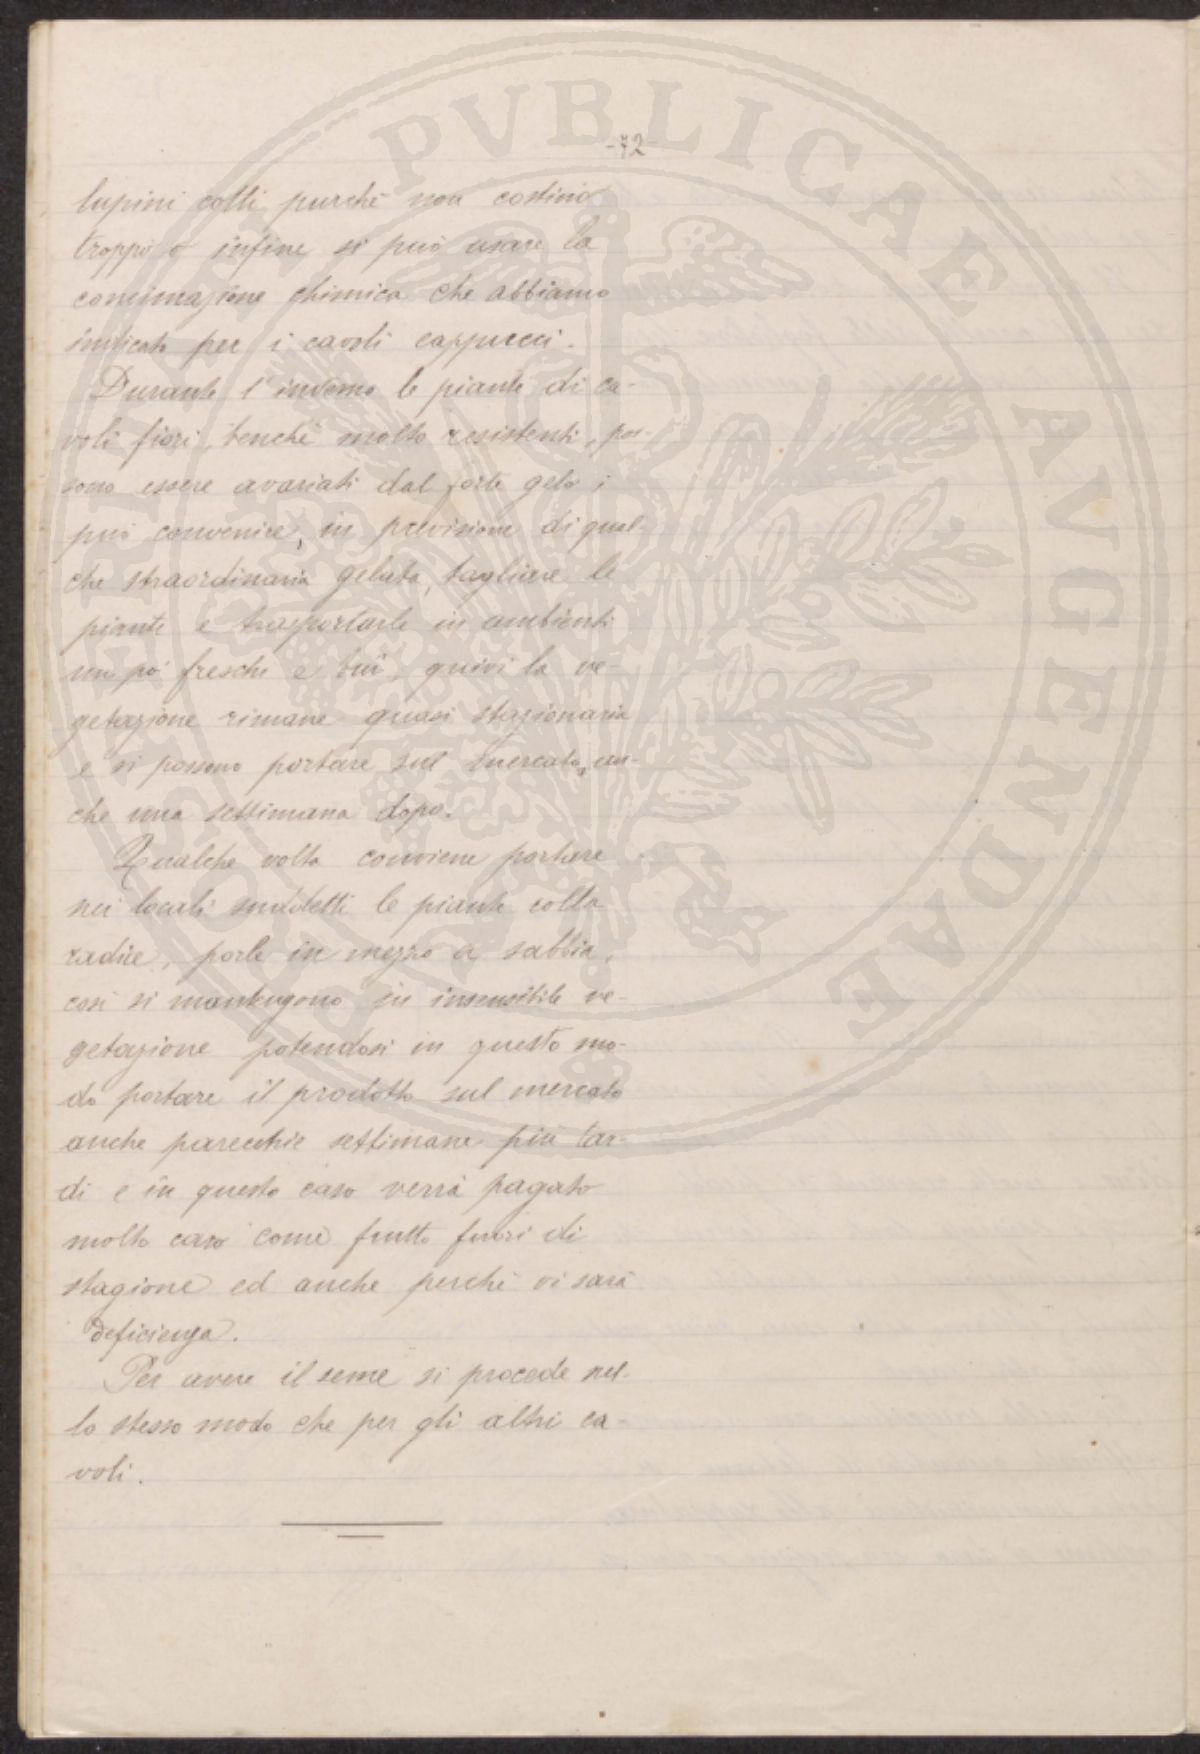 -72
lupini cotti purchè non costino
troppo o infine si può usare la
concimazione chimica che abbiamo
indicato per i cavoli cappucci.
Durante l'inverno le piante di ca-
voli fiori, benchè molto resistenti, pos-
sono essere avariati dal forte gelo;
può convenire, in previsione di qual-
che straordinaria gelata, tagliare le
piante e trasportarle in ambienti
un pò freschi e bui, quivi la ve-
getazione rimane quasi stazionaria
e si possono portare sul mercato, an-
che una settimana dopo.
Qualche volta conviene portare
nei locali suddetti le piante colla
radice, porle in mezzo a sabbia,
così si mantengono in insensibile ve-
getazione potendosi in questo mo-
do portare il prodotto sul mercato
anche parecchie settimane più tar-
di e in questo caso verrà pagato
molto caro come frutto fuori di
stagione ed anche perchè vi sarà
deficienza.
Per avere il seme si procede nel-
lo stesso modo che per gli altri ca-
voli.
PVBLICAE AVGENDAE